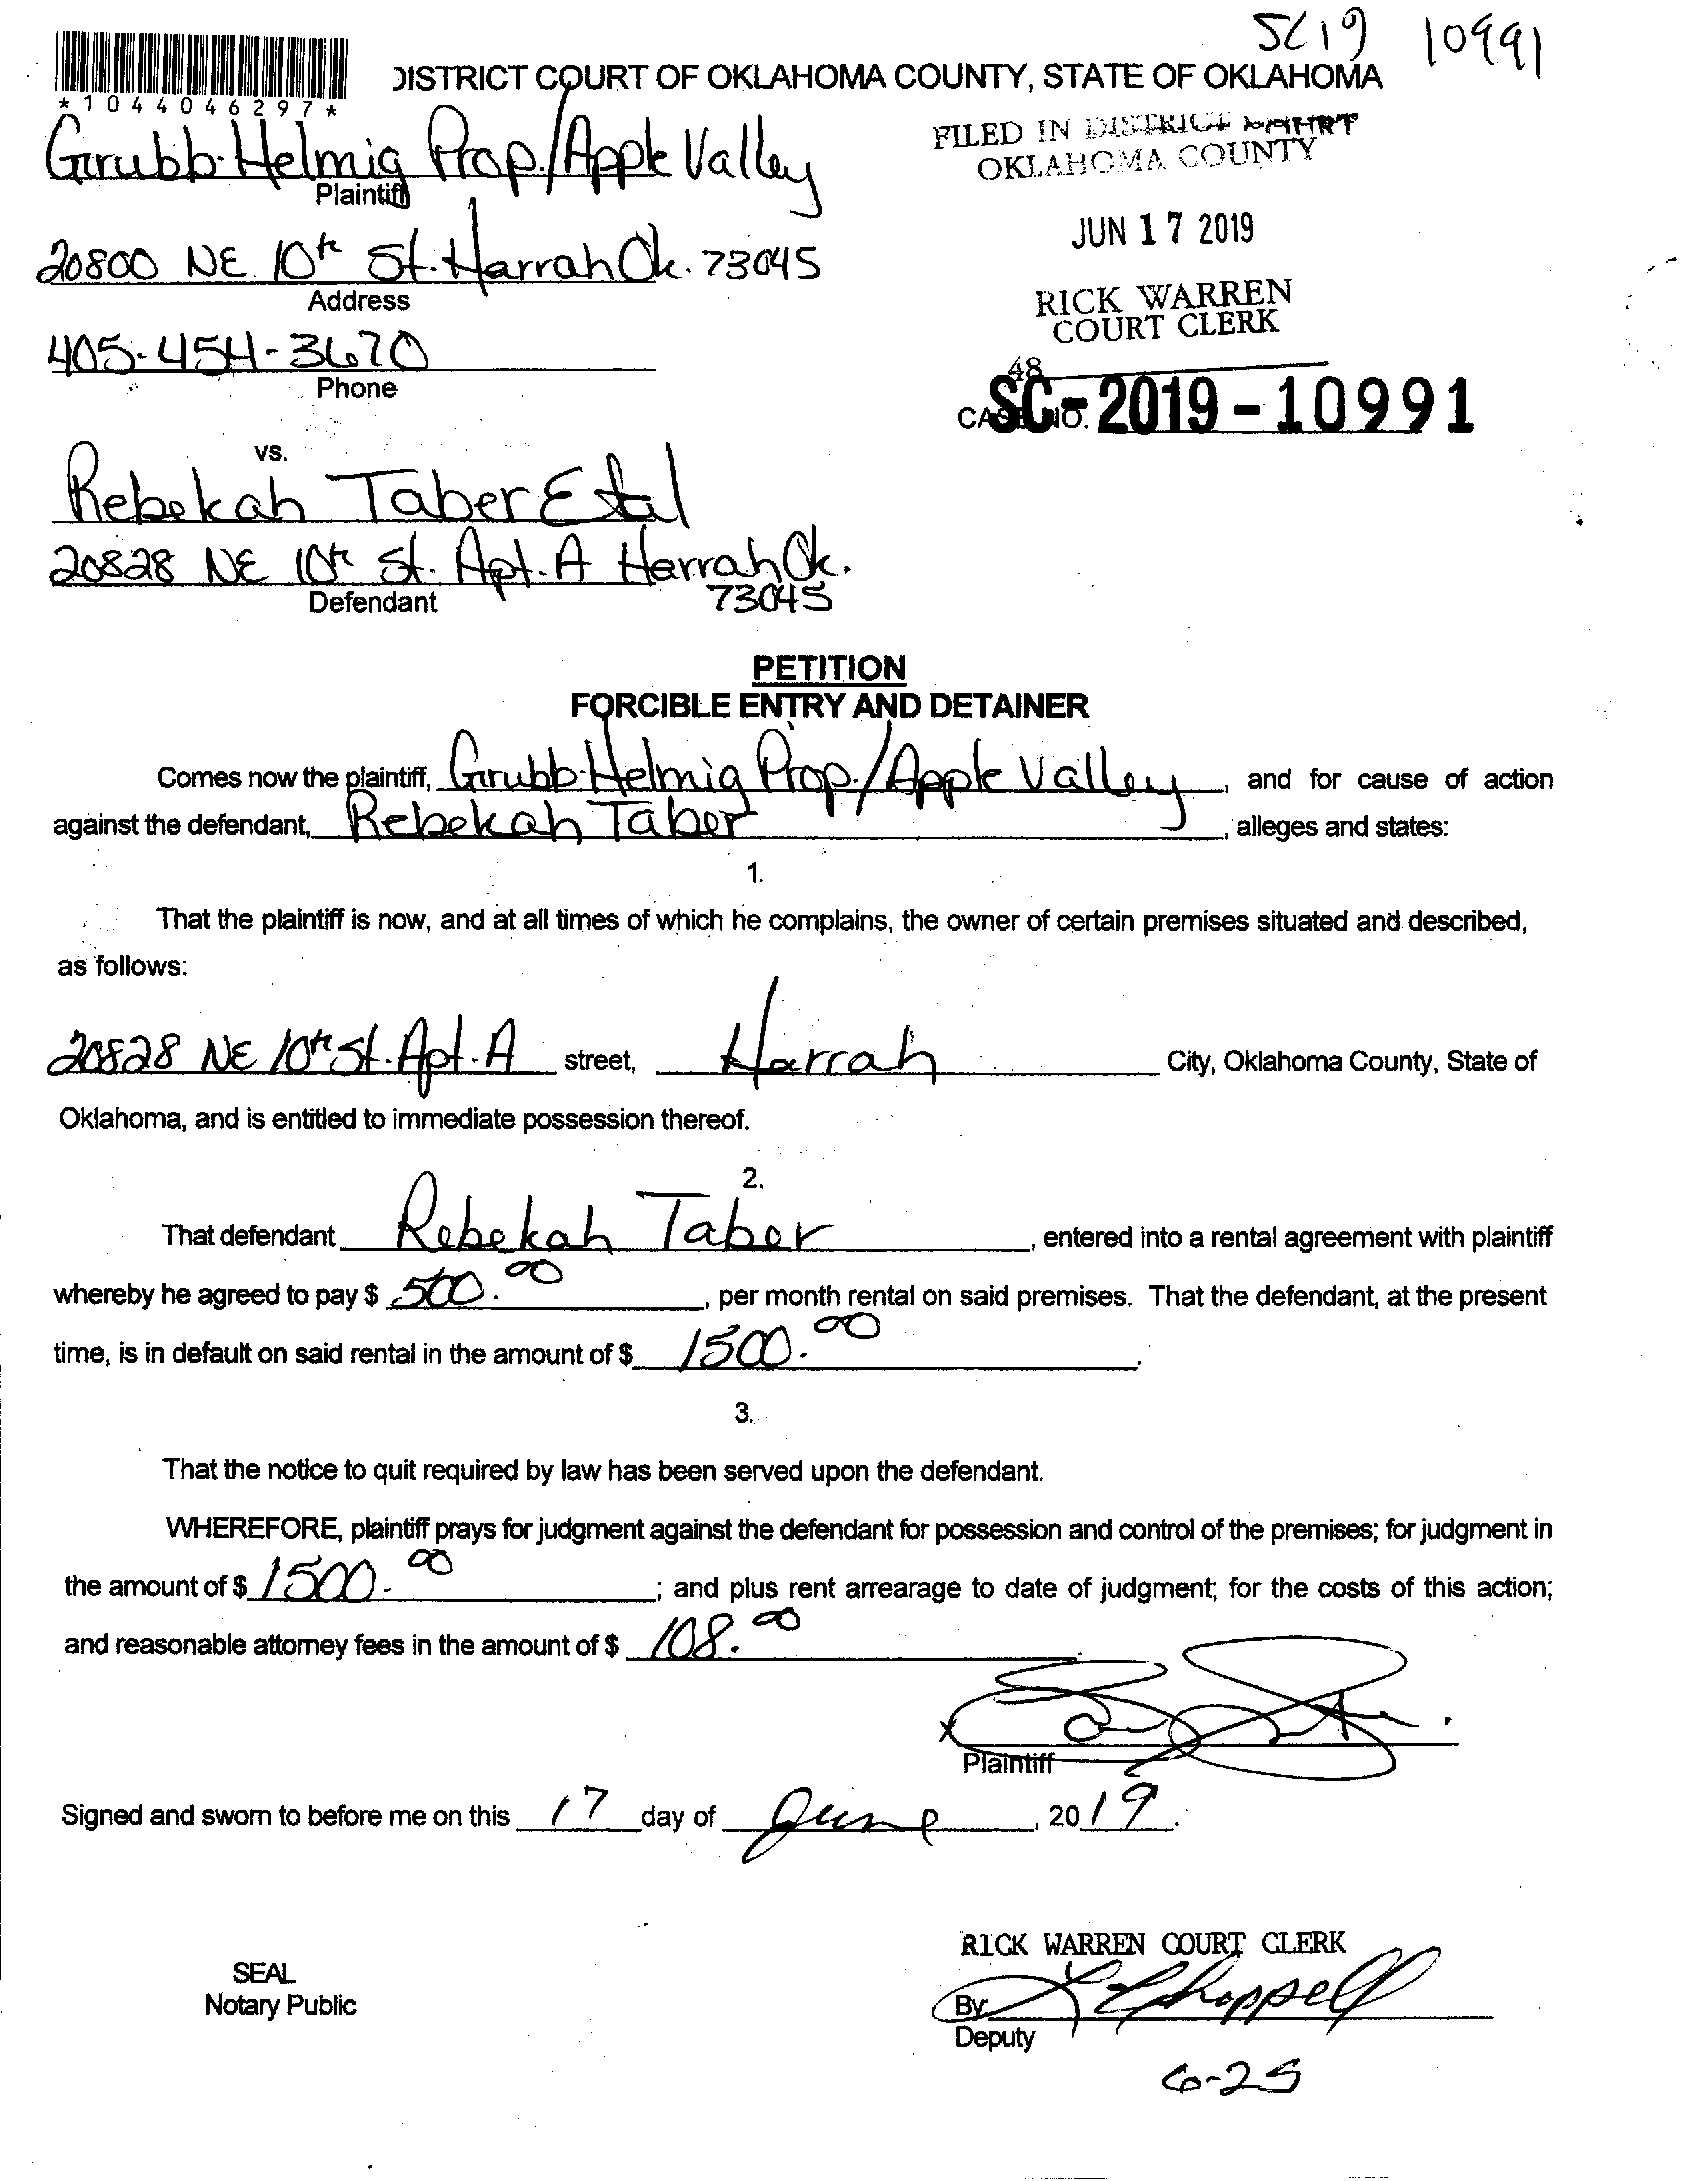 SC19 10991
*1044046297*
DISTRICT COURT OF OKLAHOMA COUNTY, STATE OF OKLAHOMA
FILED IN DISTRICT COURT
OKLAHOMA COUNTY
JUN 17 2019
RICK WARREN
COURT CLERK
48
CASE NO. SC-2019-10991
Grubb-Helmig Prop./Apple Valley
Plaintiff
20800 NE 10th St. Harrah Ok. 73045
Address
405-454-3670
Phone
vs.
Rebekah Taber Etal
20828 NE 10th St. Apt. A Harrah Ok.
73045
Defendant
PETITION
FORCIBLE ENTRY AND DETAINER
Comes now the plaintiff, Grubb-Helmig Prop./Apple Valley, and for cause of action
against the defendant, Rebekah Taber, alleges and states:
1.
That the plaintiff is now, and at all times of which he complains, the owner of certain premises situated and described,
as follows:
20828 NE 10th St. Apt. A street, Harrah City, Oklahoma County, State of
Oklahoma, and is entitled to immediate possession thereof.
2.
That defendant Rebekah Taber, entered into a rental agreement with plaintiff
whereby he agreed to pay $ 500.00, per month rental on said premises. That the defendant, at the present
time, is in default on said rental in the amount of $ 1500.00.
3.
That the notice to quit required by law has been served upon the defendant.
WHEREFORE, plaintiff prays for judgment against the defendant for possession and control of the premises; for judgment in
the amount of $ 1500.00; and plus rent arrearage to date of judgment; for the costs of this action;
and reasonable attorney fees in the amount of $ 108.00
x
Plaintiff
Signed and sworn to before me on this 17 day of June, 2019.
RICK WARREN COURT CLERK
SEAL
Notary Public
By Chappell
Deputy
6-25